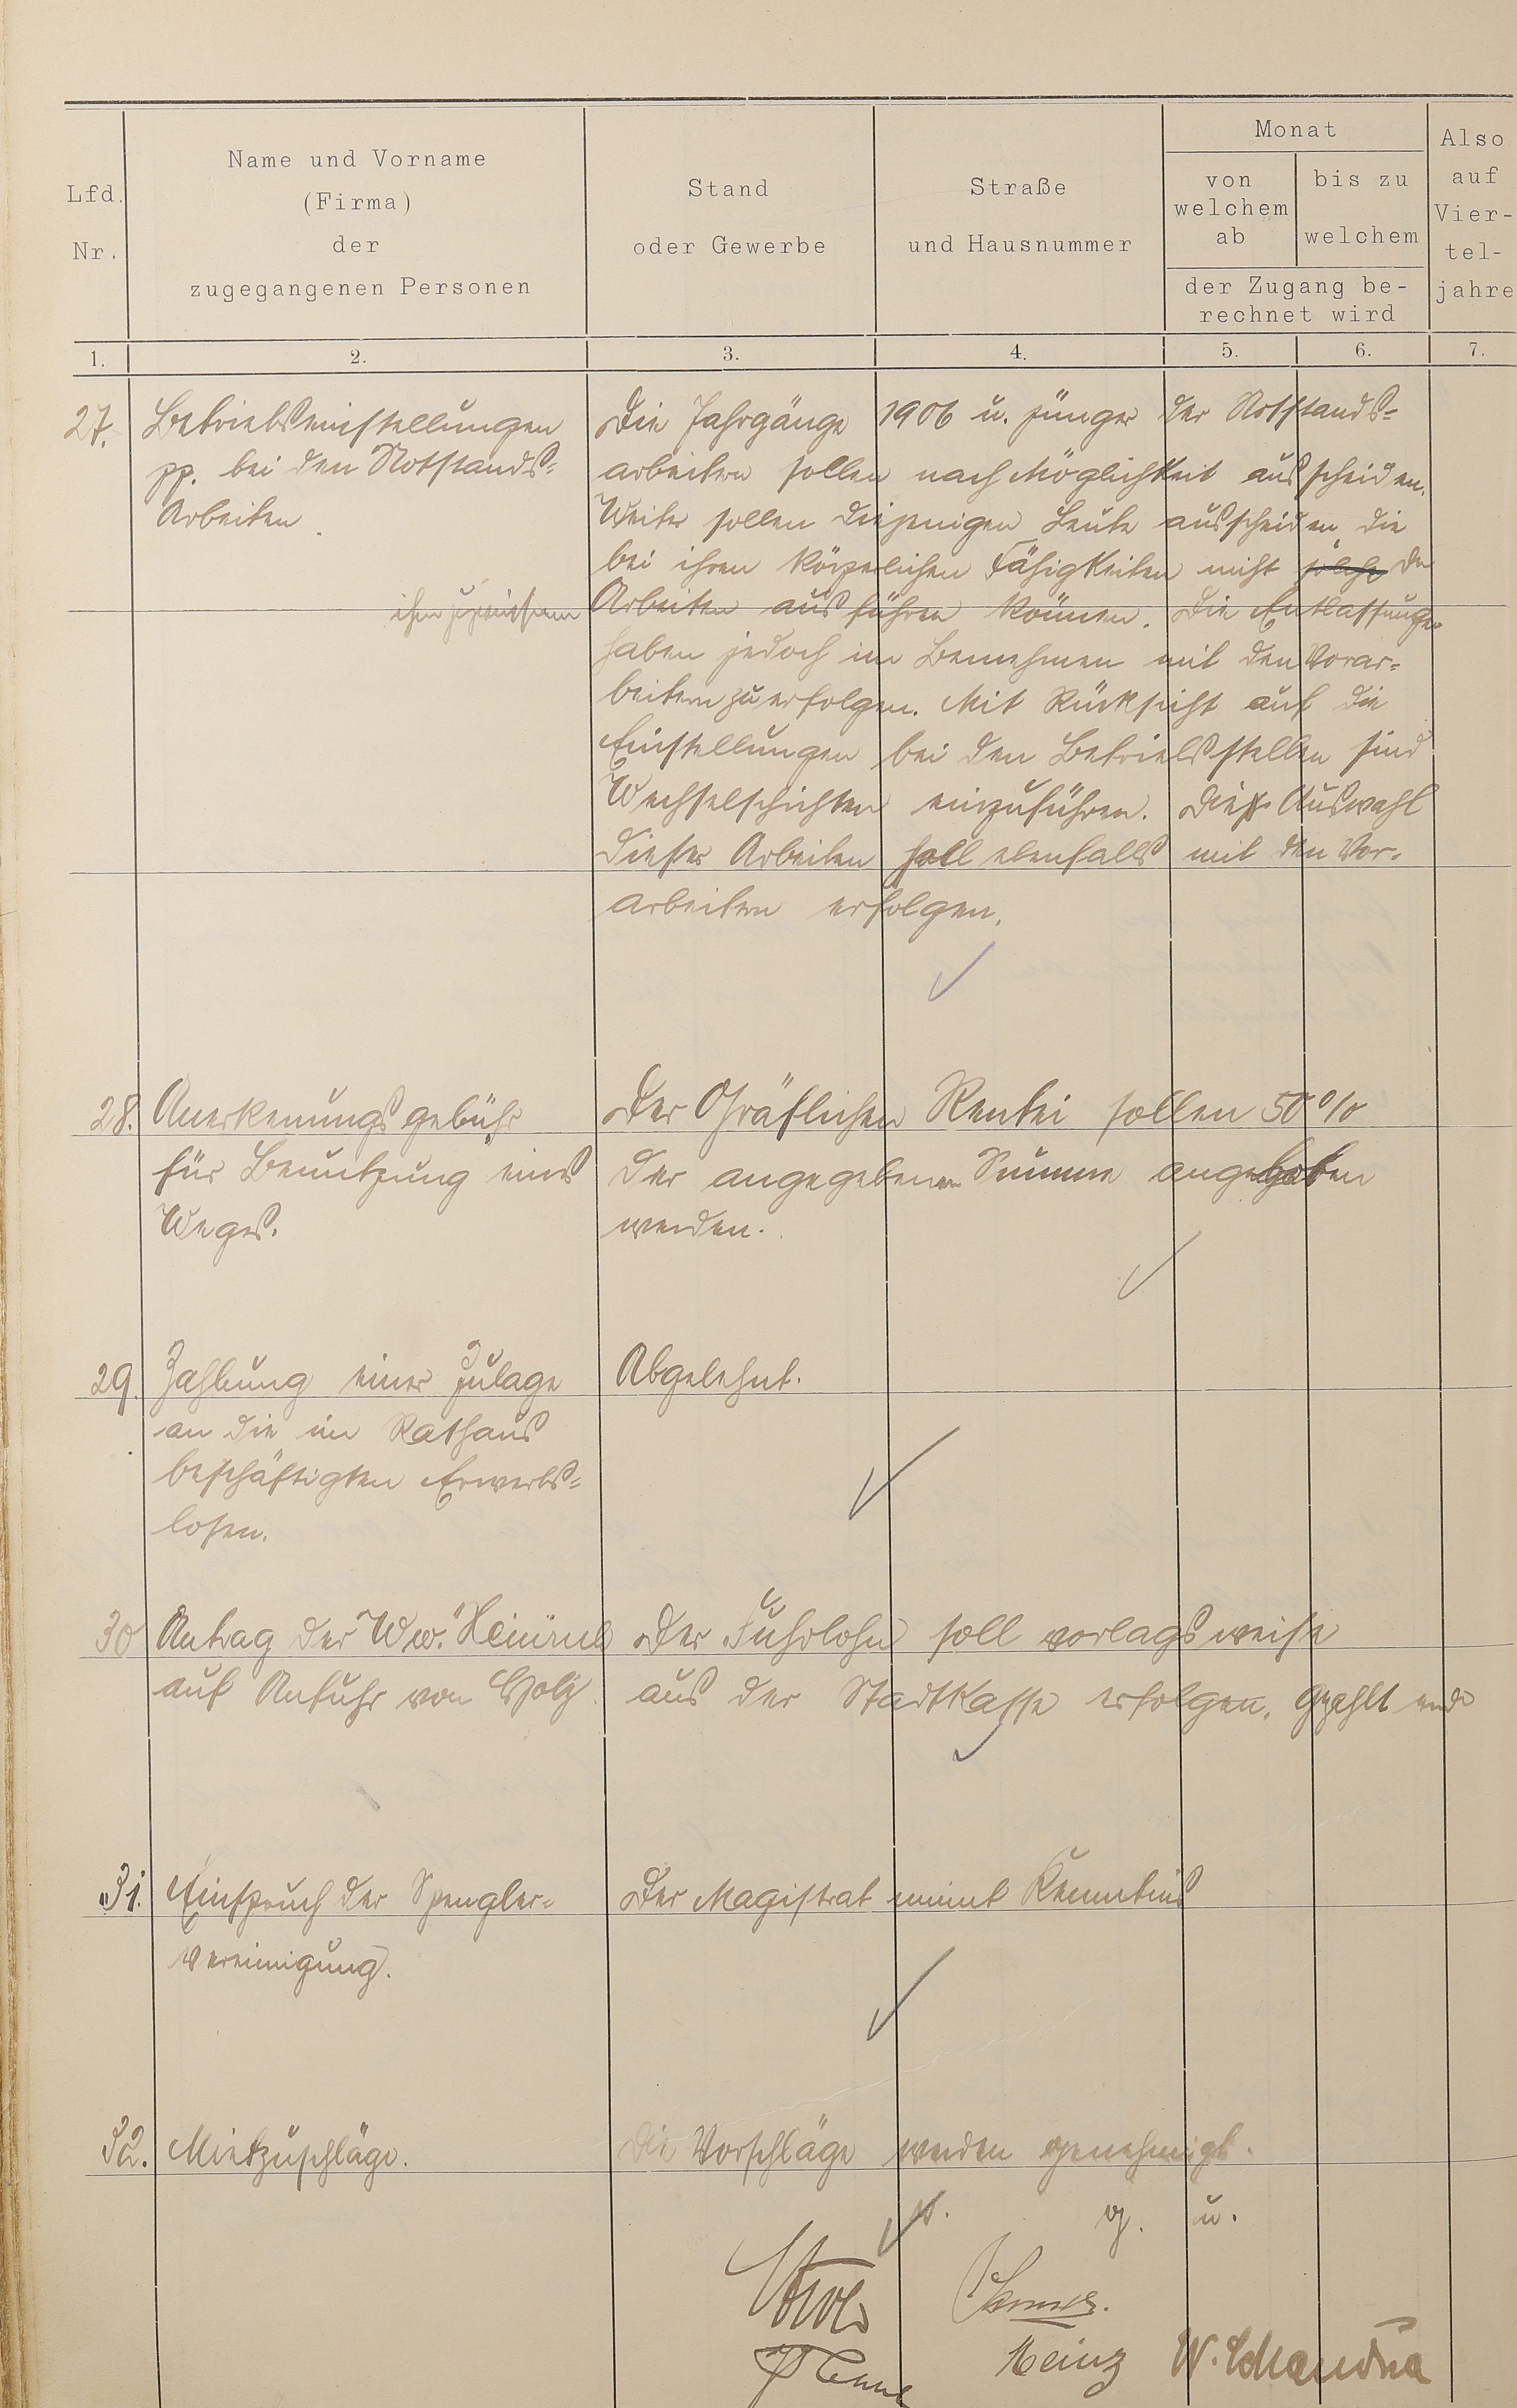 Lfd. Nr.
Name und Vorname
(Firma)
der
zugegangenen Personen
Stand
oder Gewerbe
Straße
und Hausnummer
Monat
von
welchem
ab
bis zu
welchem
der Zugang be-
rechnet wird
Also
auf
Vier-
tel-
jahre
1. 2. 3. 4. 5. 6. 7.
27. Betriebseinstellungen
pp. bei den Notstands=
Arbeiten.
Die Jahrgänge 1906 u. jünger der Notstands=
arbeitern sollen nach Möglichkeit ausscheiden.
Weiter sollen diejenigen Leute ausscheiden, die
bei ihren körperlichen Fähigkeiten nicht solche die
ihnen zugewiesenen Arbeiten ausführen können. Die Entlassungen
haben jedoch im Benehmen mit den Vorar=
beitern zu erfolgen. Mit Rücksicht auf die
Einstellungen bei den Betriebsstellen sind
Wechselschichten einzuführen. Die Auswahl
dieser Arbeiten soll ebenfalls mit den Vor=
arbeitern erfolgen.
28. Anerkenungsgebühr
für Benutzung eines
Weges.
Der Gräflichen Rentei sollen 50%
der angegebenen Summe angeboten
werden.
29. Zahlung einer Zulage
an die im Rathaus
beschäftigten Erwerbs=
losen.
Abgelehnt.
30 Antrag der Ww.
auf Anfuhr von Holz.
Der Fuhrlohn soll vorlagsweise
aus der Stadtkasse erfolgen. gezahlt
31. Einspruch der Spengler=
vereinigung.
Der Magistrat nimmt Kenntnis
32. Mietzuschläge.
Die Vorschläge werden genehmigt.
v. g. u.
Heinz